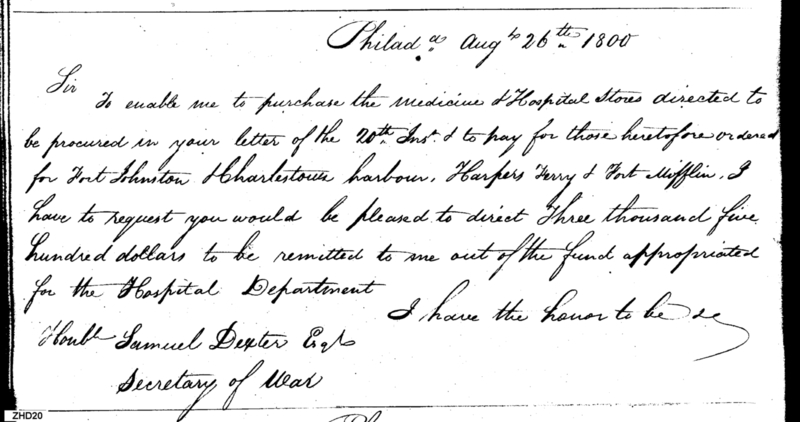 Philad.a Aug.t 26th 1800
Sir
To enable me to purchase the medicine & Hospital Stores directed to
be procured in your letter of the 20th Inst. & to pay for those heretofore ordered
for Fort Johnston & Charlestown harbour, Harpers Ferry & Fort Mifflin, I
have to request you would be pleased to direct Three thousand five
hundred dollars to be remitted to me out of the fund appropriated
for the Hospital Department
I have the honor to be &c
Honble Samuel Dexter Esqr
Secretary of War
ZHD20